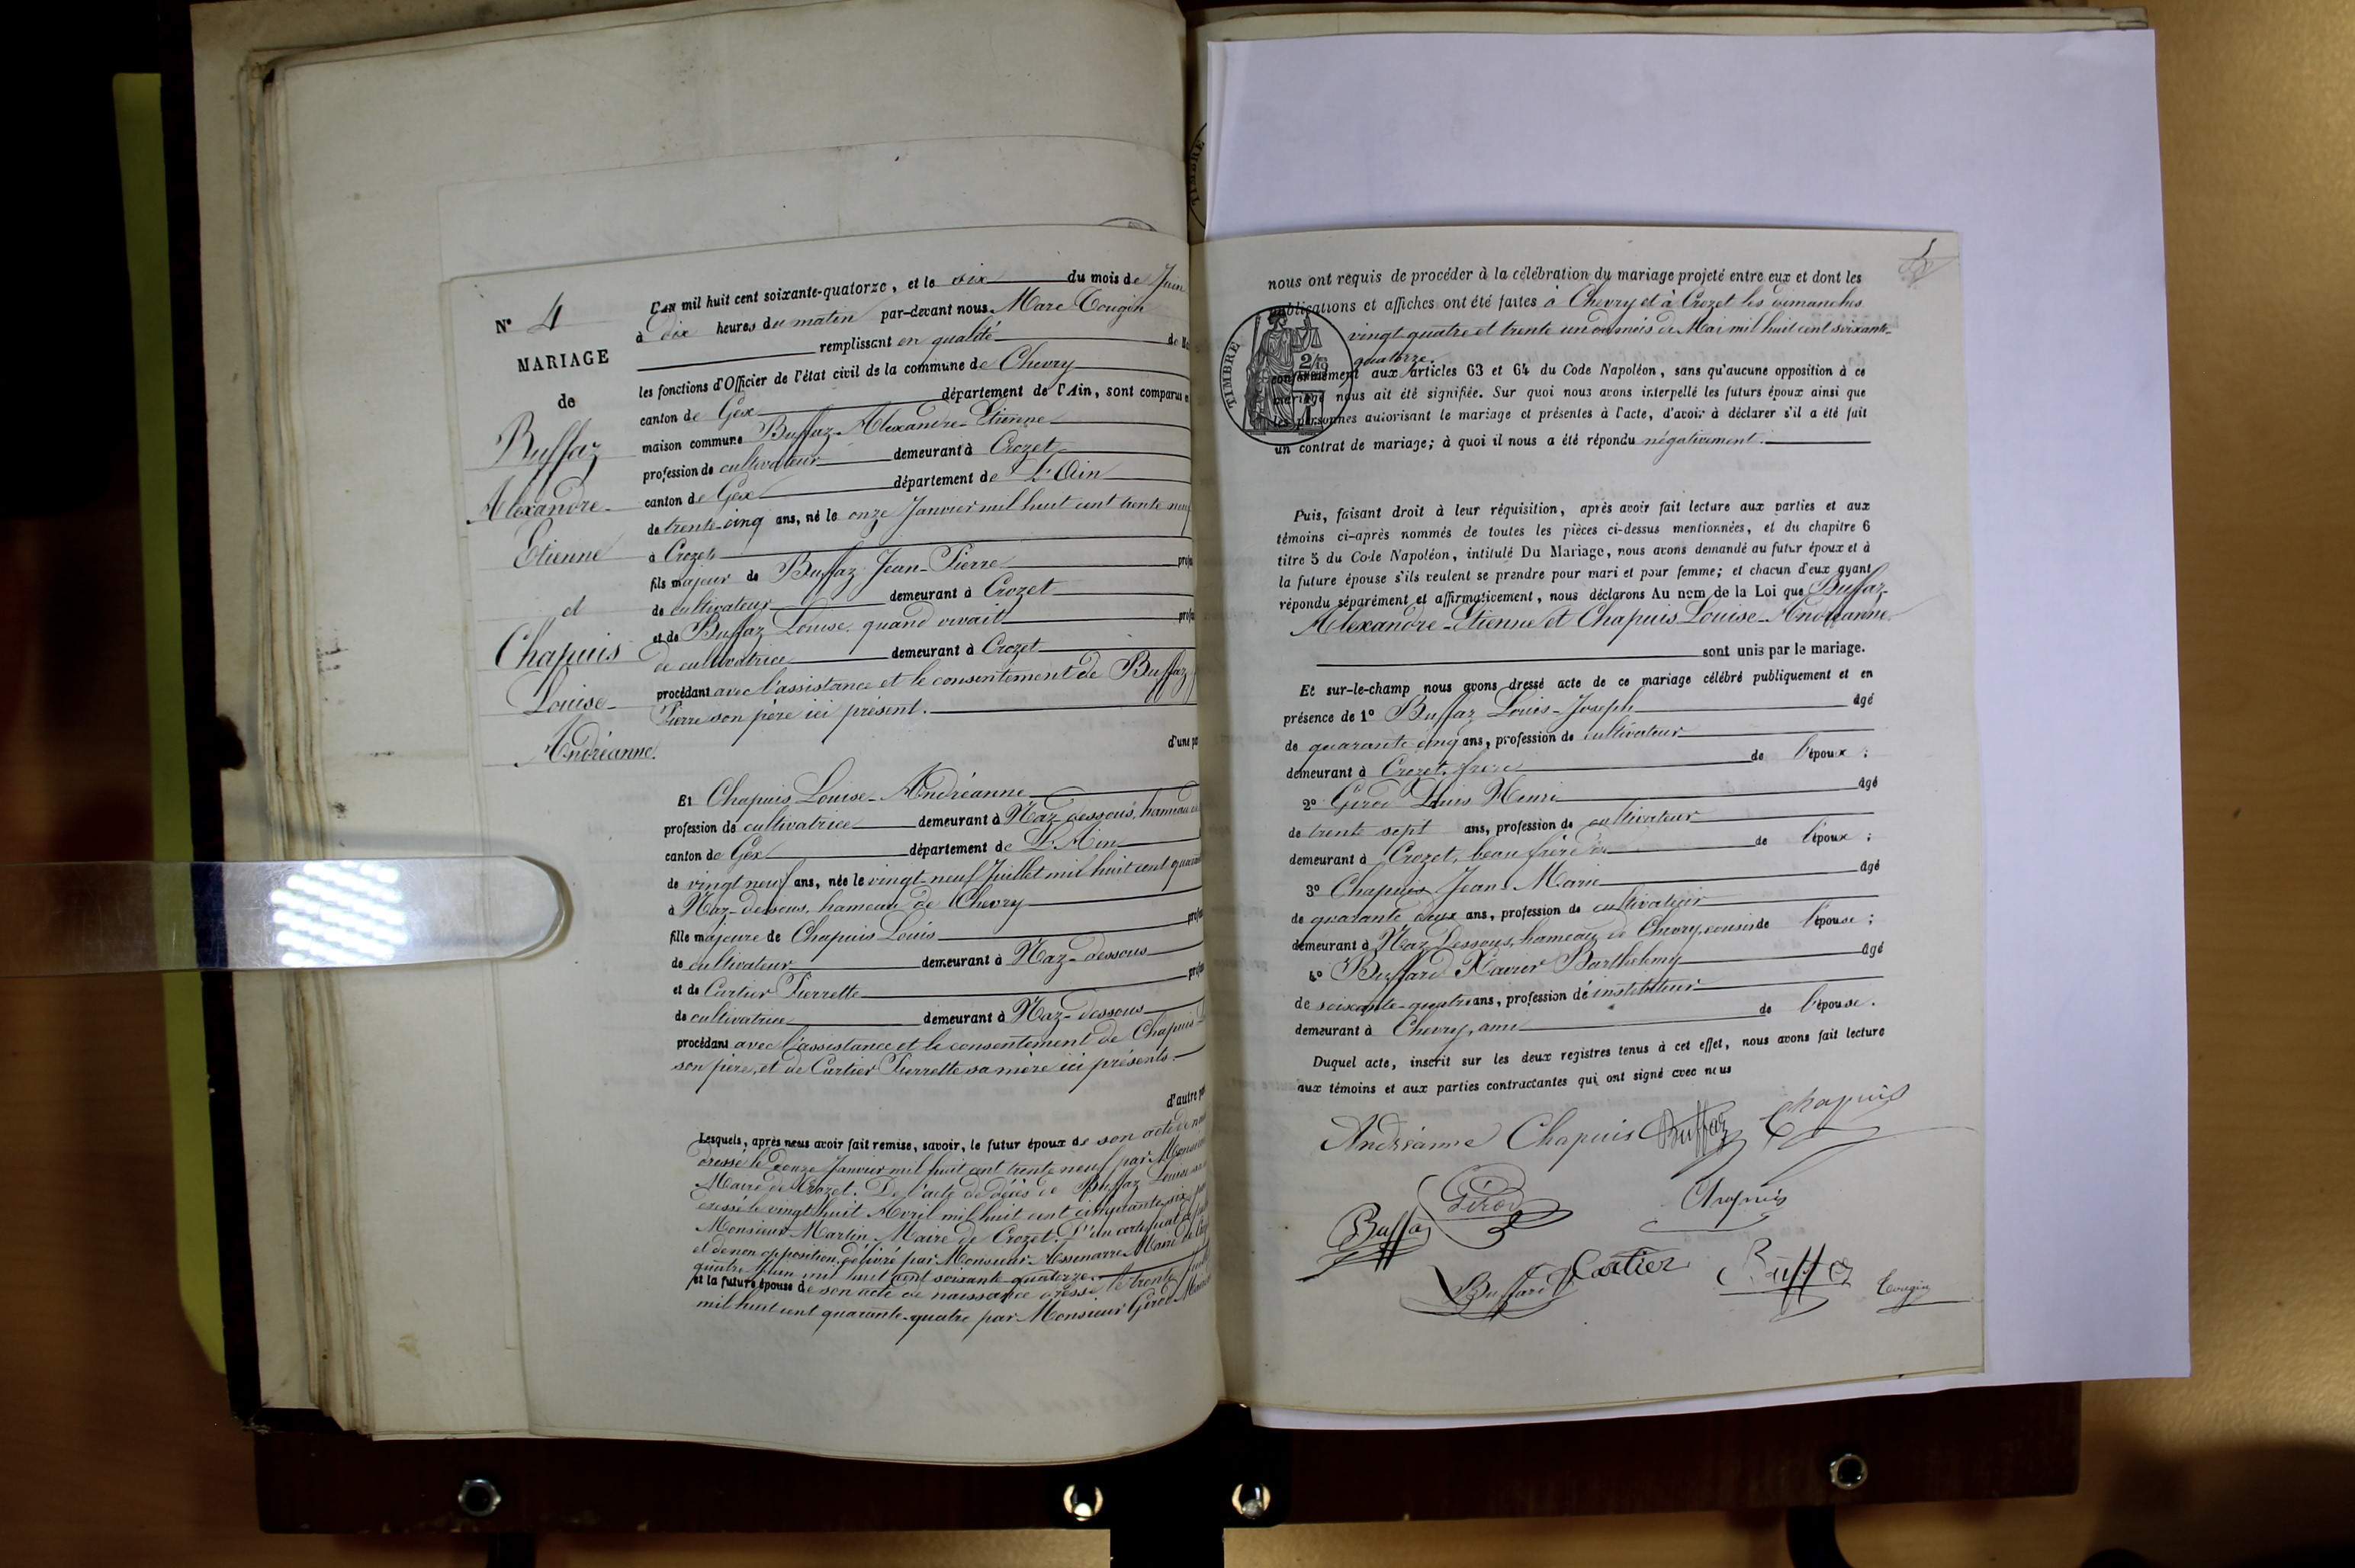 N° 4
MARIAGE
de
Buffaz
Alexandre-
Etienne
et
Chapuis
Louise-
Andréanne.
L'an mil huit cent soixante-quatorze, et le dix du mois de Juin
à dix heures du matin par-devant nous Marc Tougin
remplissant en qualité de
les fonctions d'Officier de l'état civil de la commune de Chevry
canton de Gex département de l'Ain, sont comparus
maison commune Buffaz-Alexandre-Etienne
profession de cultivateur demeurant à Crozet
canton de Gex département de L'Ain
de trente-cinq ans, né le onze Janvier mil huit cent trente neuf
à Crozet
fils majeur de Buffaz Jean-Pierre
de cultivateur demeurant à Crozet
et de Buffaz Louise quand vivait
de cultivatrice demeurant à Crozet
procédant avec l'assistance et le consentement de Buffaz
Pierre son père ici présent.
d'une
Et Chapuis Louise-Andréanne
profession de cultivatrice demeurant à Naz-dessous, hameau
canton de Gex département de L'Ain
de vingt neuf ans, née le vingt-neuf Juillet mil huit cent
à Naz-dessous, hameau de Chevry
fille majeure de Chapuis Louis
de cultivateur demeurant à Naz-dessous
et de Cartier Pierrette
de cultivatrice demeurant à Naz-dessous
procédant avec l'assistance et le consentement de Chapuis
son père, et de Cartier Pierrette sa mère ici présents.
d'autre
Lesquels, après nous avoir fait remise, savoir, le futur époux de son acte de
dressé le douze Janvier mil huit cent trente neuf par
Maire de Crozet. De l'acte de décès de Buffaz Louise
dressé le vingt huit Avril mil huit cent cinquante-six
Monsieur Martin Maire de Crozet. D'un certificat de
et de non opposition délivré par Monsieur Maire de
quatre Juin mil huit cent soixante-quatorze.
et la future épouse de son acte de naissance dressé le trente
mil huit cent quarante-quatre par Monsieur Girod
nous ont requis de procéder à la célébration du mariage projeté entre eux et dont les
publications et affiches ont été faites à Chevry et à Crozet les dimanches
vingt quatre et trente un du mois de Mai mil huit cent soixante-
quatorze.
TIMBRE
conformément aux articles 63 et 64 du Code Napoléon, sans qu'aucune opposition à ce
mariage nous ait été signifiée. Sur quoi nous avons interpellé les futurs époux ainsi que
les personnes autorisant le mariage et présentes à l'acte, d'avoir à déclarer s'il a été fait
un contrat de mariage; à quoi il nous a été répondu négativement.
Puis, faisant droit à leur réquisition, après avoir fait lecture aux parties et aux
témoins ci-après nommés de toutes les pièces ci-dessus mentionnées, et du chapitre 6
titre 5 du Code Napoléon, intitulé Du Mariage, nous avons demandé au futur époux et à
la future épouse s'ils veulent se prendre pour mari et pour femme; et chacun d'eux ayant
répondu séparément et affirmativement, nous déclarons Au nom de la Loi que Buffaz-
Alexandre-Etienne et Chapuis Louise-Andréanne.
sont unis par le mariage.
Et sur-le-champ nous avons dressé acte de ce mariage célébré publiquement et en
présence de 1° Buffaz Louis-Joseph âgé
de quarante cinq ans, profession de cultivateur
demeurant à Crozet, frère de l'époux ;
2° Girod Louis Henri âgé
de trente sept ans, profession de cultivateur
demeurant à Crozet, beau frère de l'époux ;
3° Chapuis Jean-Marie âgé
de quarante deux ans, profession de cultivateur
demeurant à Naz-Dessous, hameau de Chevry, cousin de l'épouse ;
4° Buffard Xavier Barthélemy âgé
de soixante-quatre ans, profession de instituteur
demeurant à Chevry, ami de l'épouse.
Duquel acte, inscrit sur les deux registres tenus à cet effet, nous avons fait lecture
aux témoins et aux parties contractantes qui ont signé avec nous
Andréanne Chapuis Buffaz Chapuis
Girod Chapuis
Buffaz
Buffard Cartier Buffaz Tougin